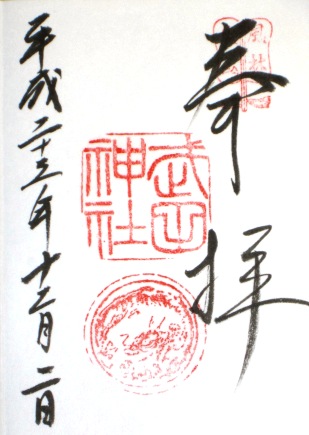 奉拝
武田神社
平成二十三年十二月二日